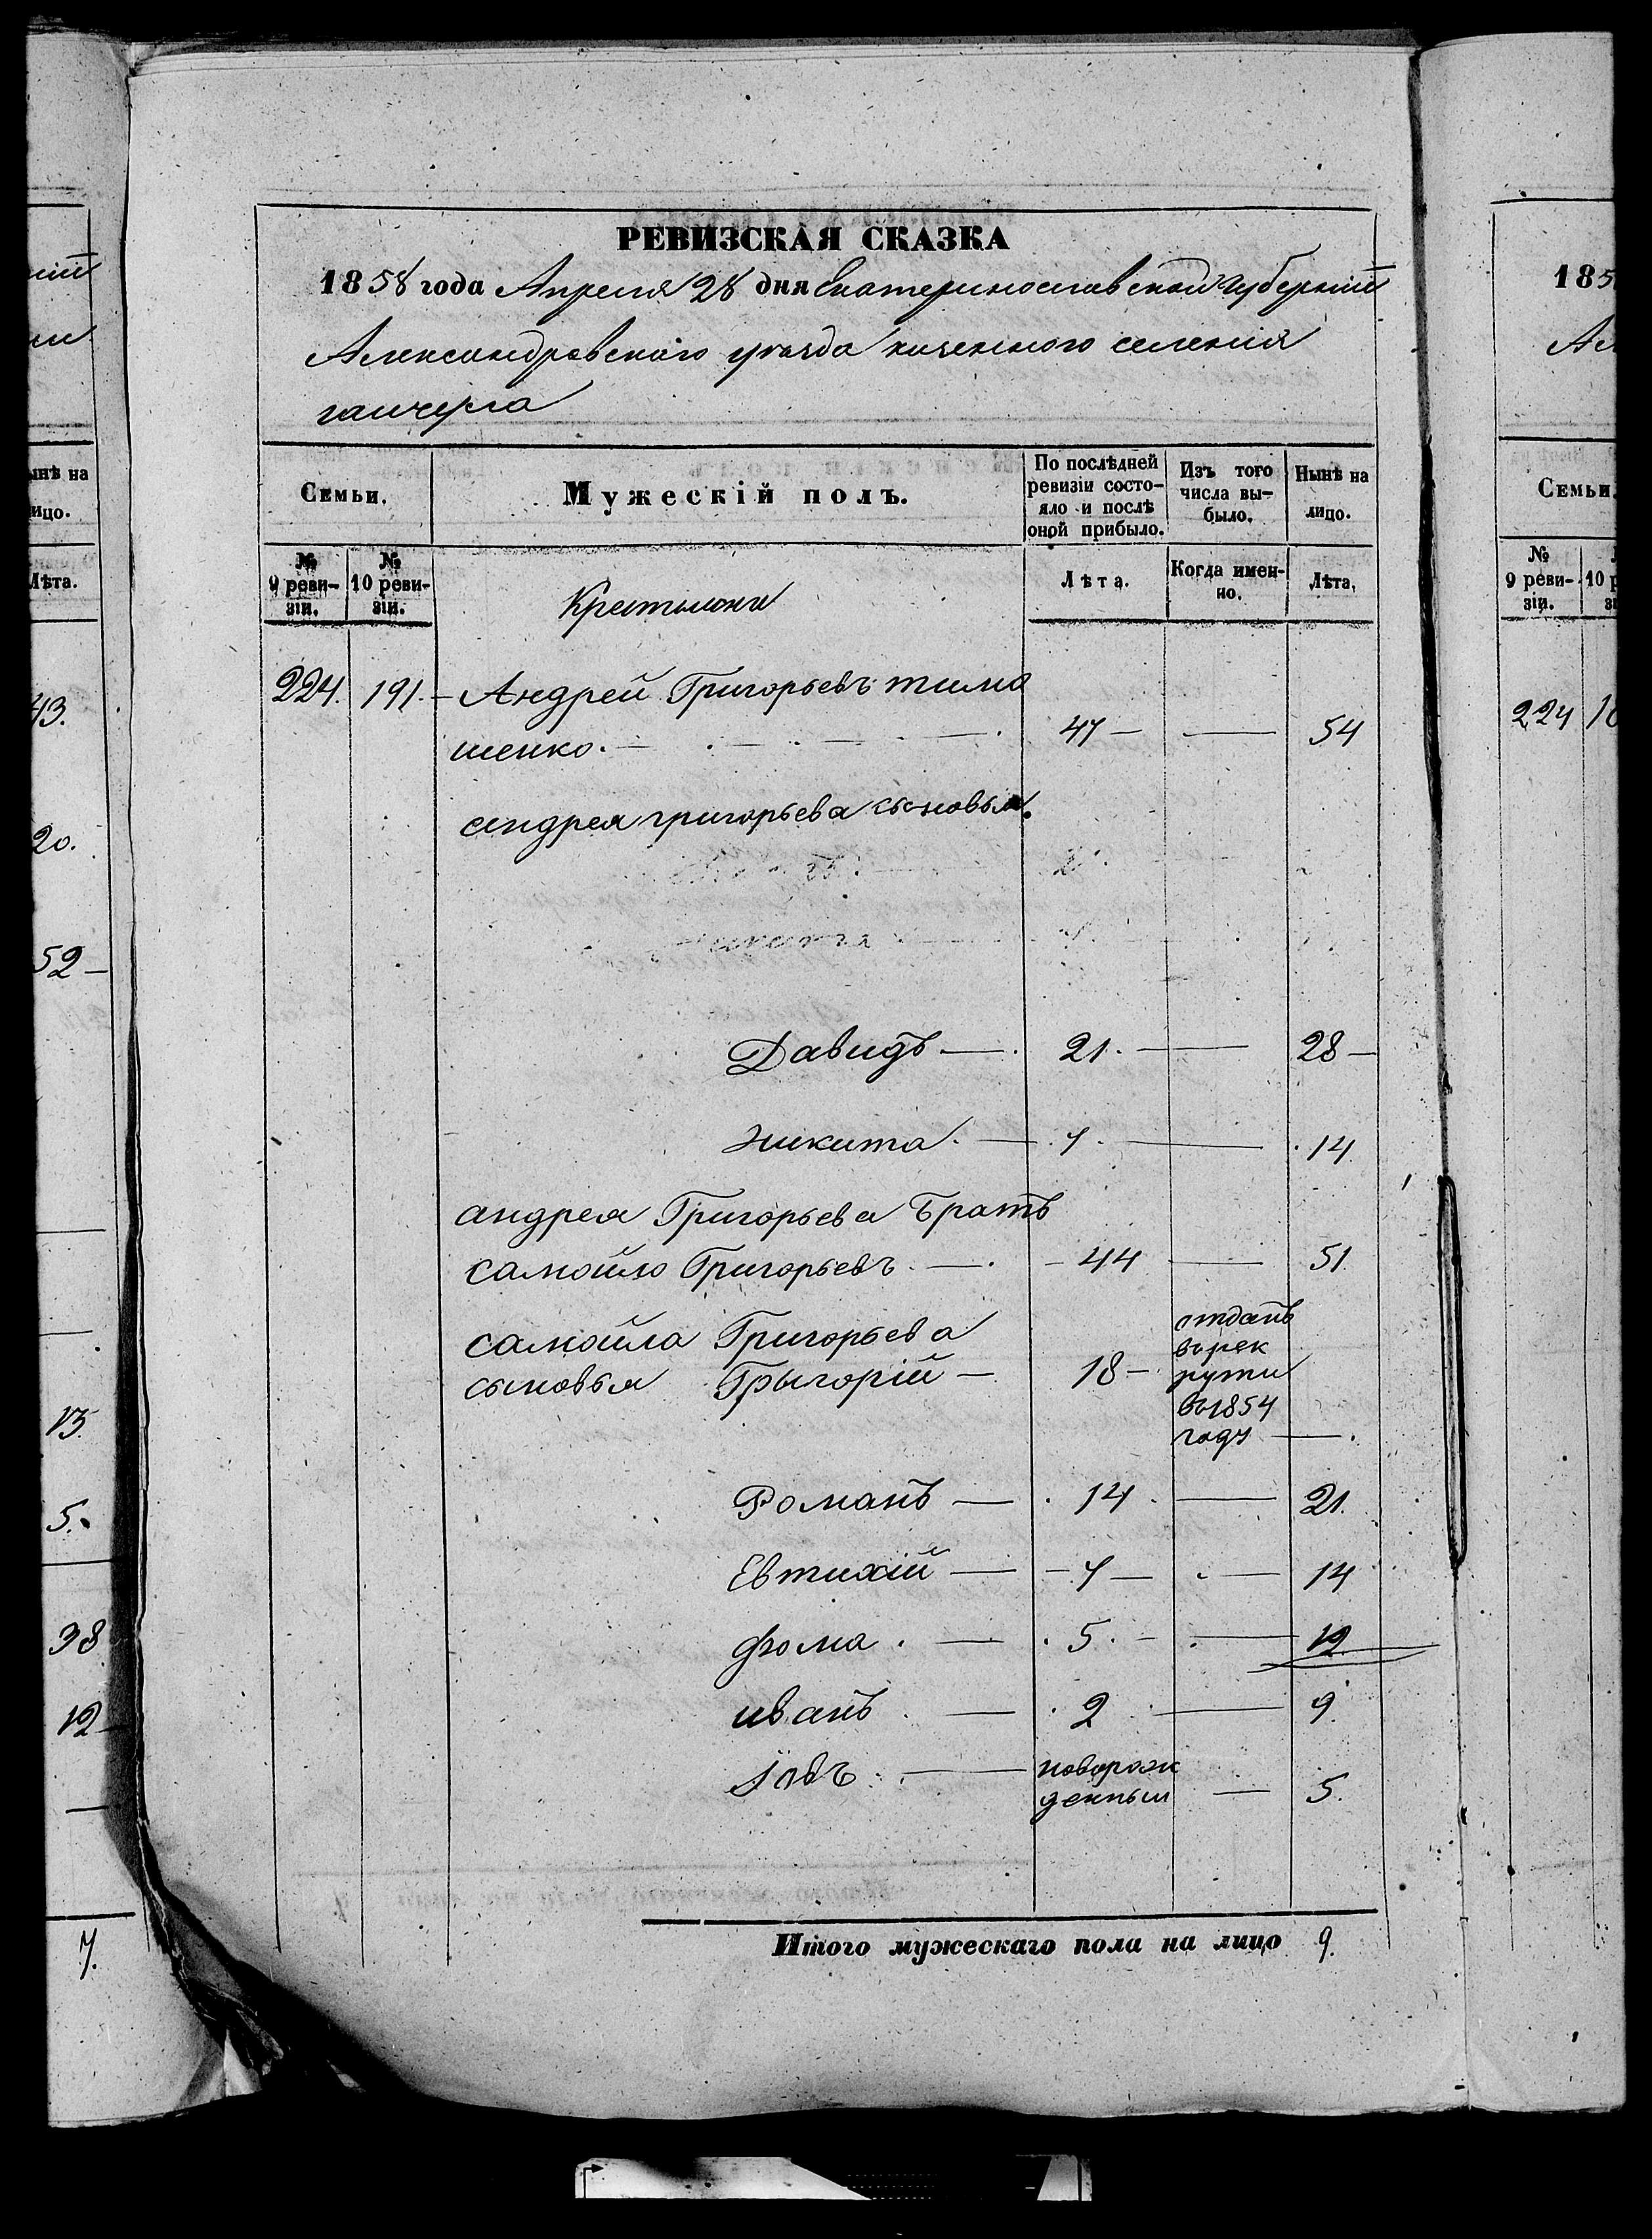 РЕВИЗСКАЯ СКАЗКА
1858 года Апреля 28 дня Екатеринославской Губерніи
Александровскаго уѣзда казенного селенія
гайчерга
Семьи.
Мужескій полъ.
По послѣдней ревизіи состо-
яло и послѣ
оной прибыло.
Изъ того
числа вы-
было.
Нынѣ на
лицо.
№
9 реви-
зіи.
№
10 реви-
зіи.
Крестьяне
Лѣта.
Когда имен-
но.
Лѣта.
224. 191. Андрей Григорьевъ тимо
шенко. 47 — 54
андрея григорьева сыновья.
Давидъ — 21. — 28
никита — 7. — 14
андрея Григорьева братъ
самойло Григорьевъ — 44 — 51
самойла Григорьева
сыновья Грыгорій — 18 —
отданъ
въ рек
руты
въ 1854
году —
Романъ — 14 — 21.
Евтихій — 7 — 14
фома — 5. — 12
иванъ — 2 — 9
Іовъ — новорож
денный — 5.
Итого мужескаго пола на лицо 9.
ынѣ на
ицо.
Лѣта.
43.
20.
52
13.
5.
38
12
7.
185
Ал
Семьи.
№
9 реви-
зіи.
224